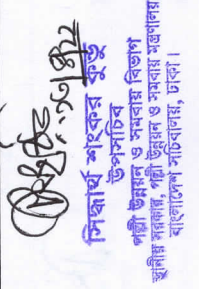 সিদ্ধার্থ শংকর কুন্ডু
উপসচিব
পল্লী উন্নয়ন ও সমবায় বিভাগ
স্থানীয় সরকার, পল্লী উন্নয়ন ও সমবায় মন্ত্রণালয়
বাংলাদেশ সচিবালয়, ঢাকা।